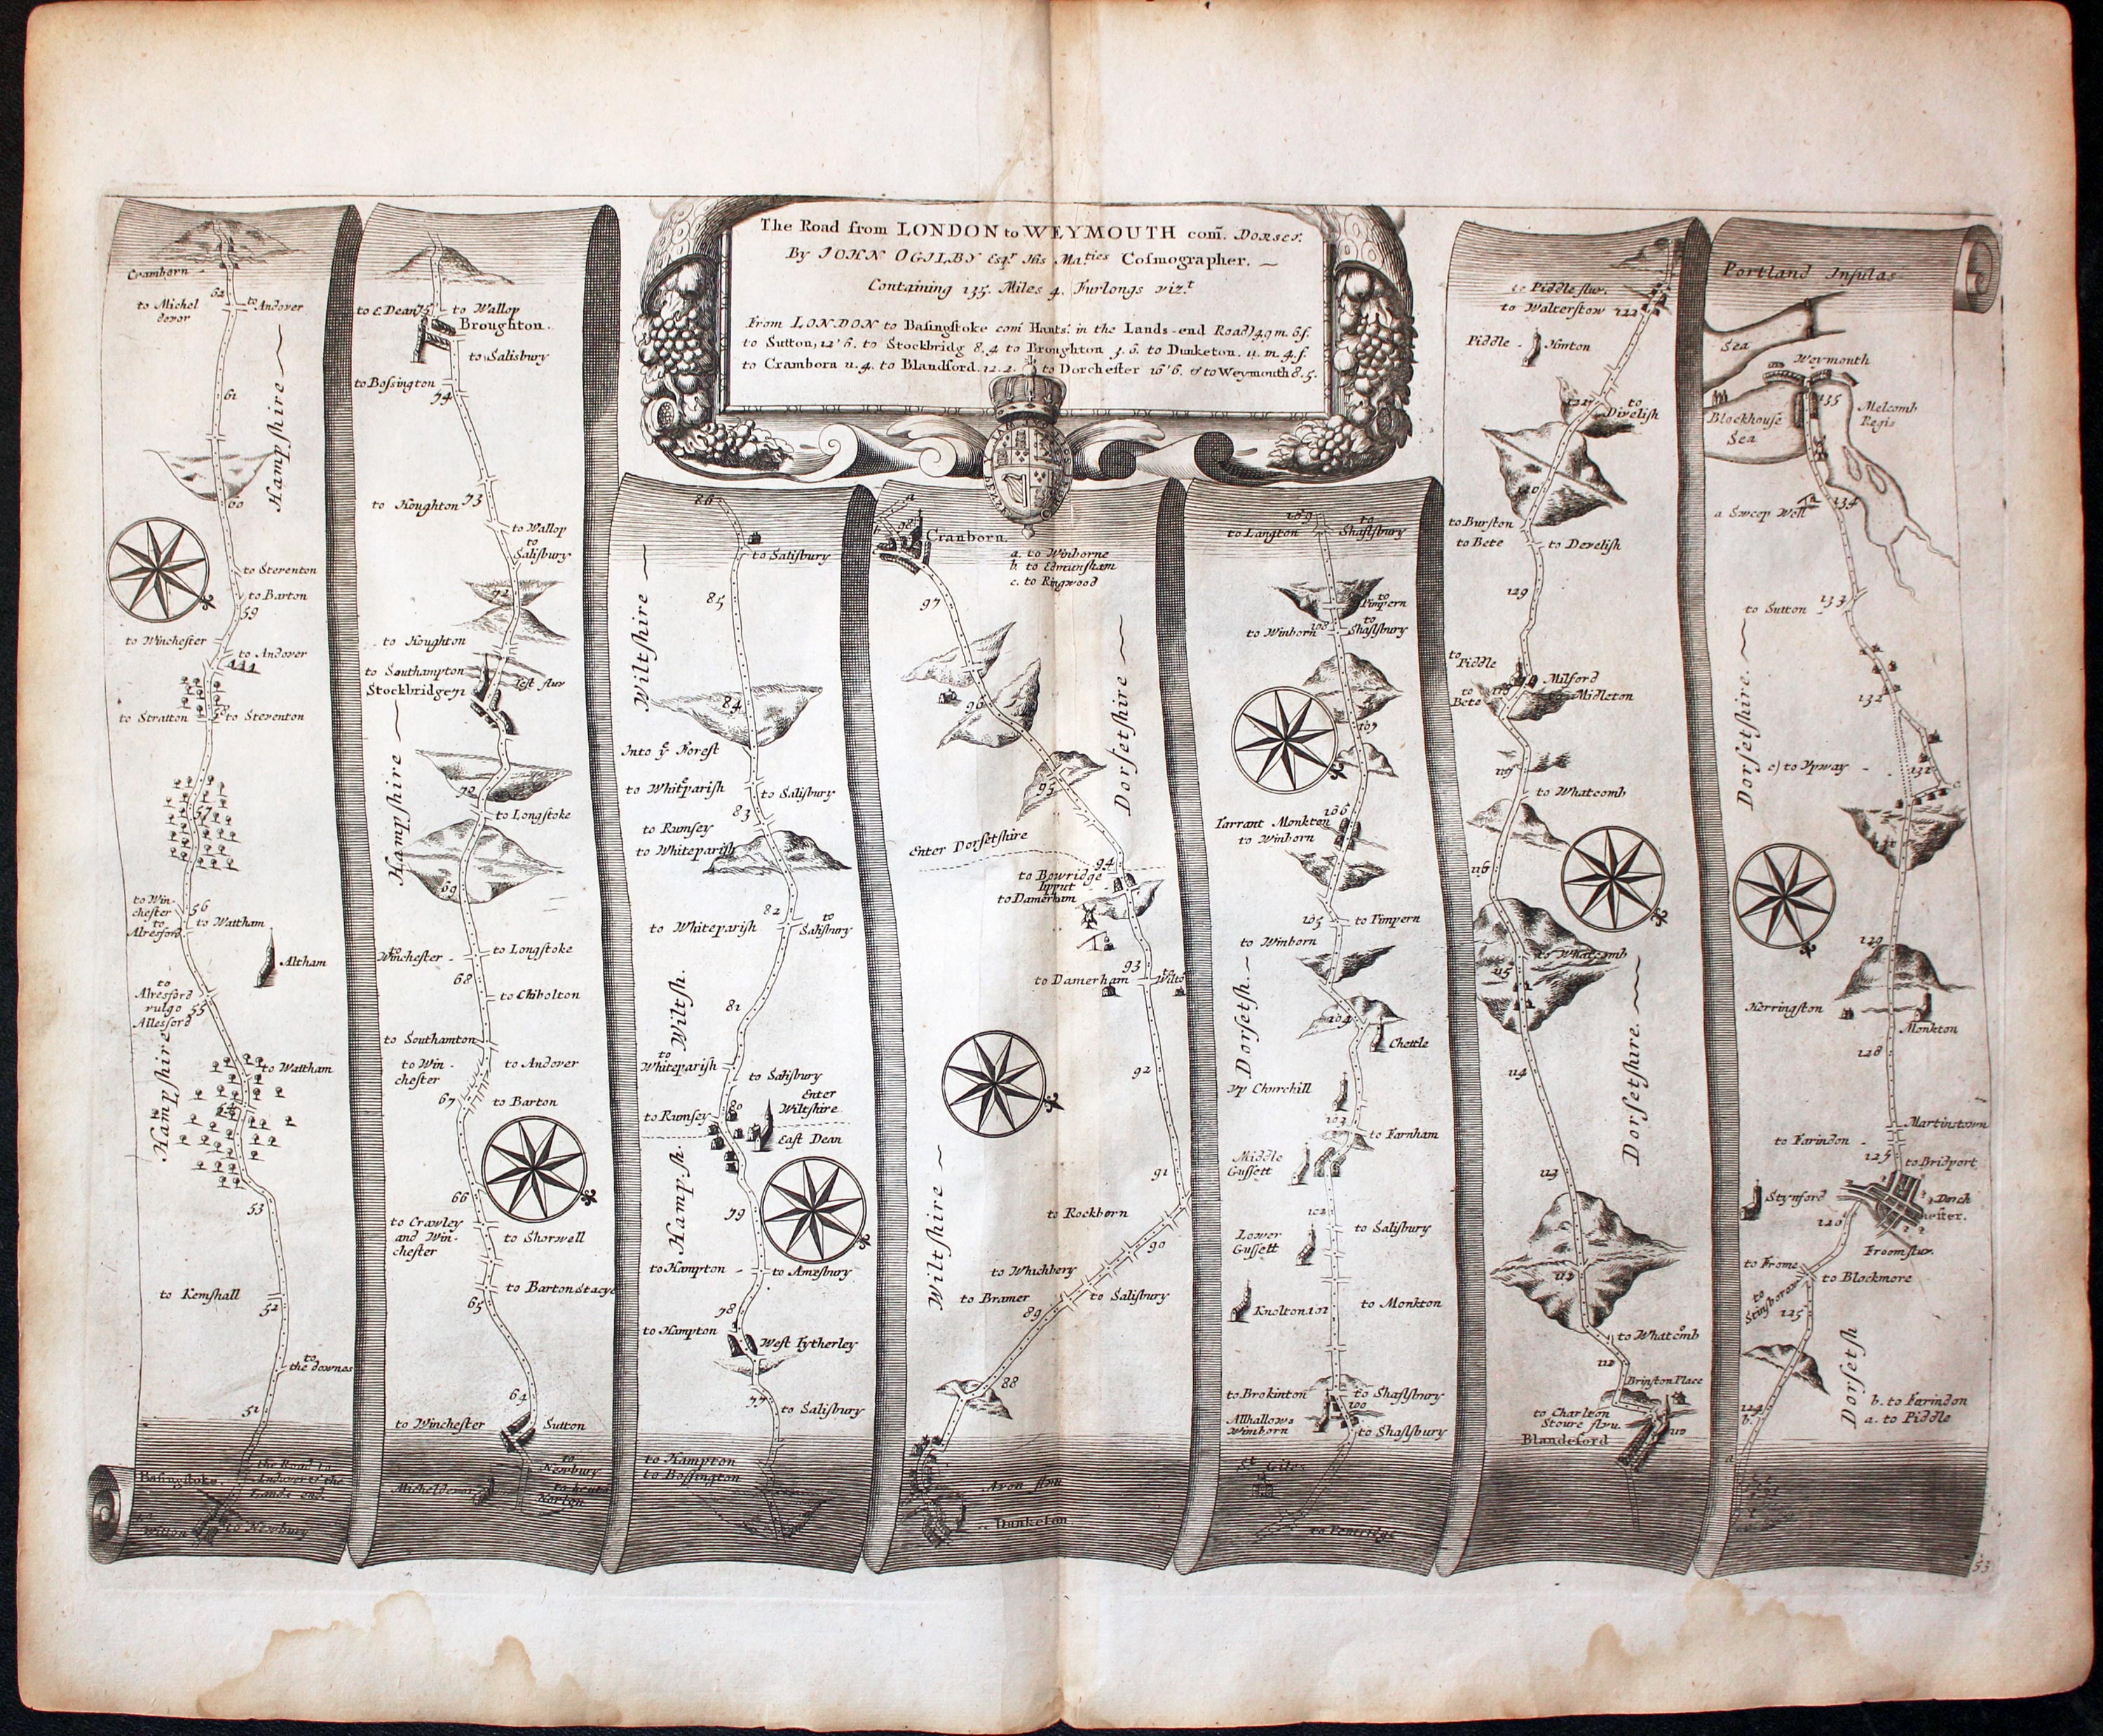 The Road from LONDON to WEYMOUTH com. Dorset.
By JOHN OGILBY Esqr. His Maties Cosmographer.
Containing 135. Miles 4. Furlongs vizt.
From LONDON to Basingstoke com Hants. in the Lands-end Road) 49 m. 6 f.
to Sutton, 12'6. to Stockbridg 8.4 to Broughton 3.6. to Dunketon. 11. m. 4. f
to Cramborn 11.4. to Blandford. 12.2. to Dorchester 16'6. & to Weymouth 8.5.
Cramborn
62
to Michel
dever
to Andover
61
Hampshire
60
to Steventon
to Barton
59
to Winchester
to Andover
to Stratton
to Steventon
57
to Win-
chester
56
to
Alresford
to Waltham
Altham
to
Alresford
vulgo
55
Allesford
Hampshire
to Waltham
53
to Kemshall
52
to
the downes
51
the Road to
Andover & the
Lands end
Basingstoke
Wilton
to Newbury
to E. Dean
75
to Wallop
Broughton
to Salisbury
to Bossington
74
to Houghton
73
to Wallop
to
Salisbury
72
to Houghton
to Southampton
Test fluv
Stockbridge 71
Hampshire
70
to Longstoke
69
to
Winchester
to Longstoke
68
to Chibolton
to Southamton
to Win-
chester
to Andover
67
to Barton
66
to Crawley
and Win-
chester
to Shorwell
to Barton Stacye
65
64
to Winchester
Sutton
to
Newbury
Micheldever
86
to Salisbury
Wiltshire
85
84
Into ye Forest
to Whitparish
to Salisbury
83
to Rumsey
to Whiteparish
82
to Whiteparish
to
Salisbury
Wiltsh.
81
to
Whiteparish
to Salisbury
Enter
Wiltshire
80
to Rumsey
East Dean
Hampsh.
79
to Hampton
to Amesbury
78
to Hampton
West Tytherley
77
to Salisbury
to Hampton
to Bossington
a
98
Cranborn.
a. to Winborne
b. to Edmunsham
c. to Ringwood
97
96
Dorsetshire
95
Enter Dorsetshire
94
to Bowridge
Tipput
to Damerham
93
to Damerham
92
Wiltshire
91
to Rockborn
90
to Whichbery
to Bramer
to Salisbury
89
88
Avon fluv
Dunketon
109
to Langton
to
Shaftsbury
to
Pimpern
to Winborn
108
to
Shaftsbury
107
106
Tarrant Monkton
to Winborn
105
to Pimpern
to Winborn
104
Chettle
Dorsetsh.
up Churchill
103
to Farnham
Middle
Gussett
102
to Salisbury
Lower
Gussett
Knolton 101
to Monkton
to Brokinton
to Shaftsbury
100
Allhallows
Wimborn
to Shaftsbury
St. Giles
to Pentridge
to Piddle fluv.
to Walterstow 122
Piddle
Hinton
121
to
Divelish
120
to Burston
to Bete
to Develish
119
to
Piddle
Milford
118
to
Bete
to Midleton
117
to Whatcomb
116
to Whatcomb
115
Dorsetshire.
114
113
112
to Whatcomb
111
Brinston Place
to Charlton
Stoure fluv.
110
Blandeford
Portland Insulas
Sea
Weymouth
135
Blockhouse
Sea
Melcomb
Regis
a Sweep Well
134
133
to Sutton
132
Dorsetshire.
c) to Upway
131
130
129
Kerrington
Monkton
128
Martinstown
to Farindon
125
to Bridport
Stynford
Dorch
hester.
126
Froom fluv.
to Frome
to Blockmore
to
Stinsborow
125
Dorsetsh
b. to Farindon
a. to Piddle
124
b.
a
53